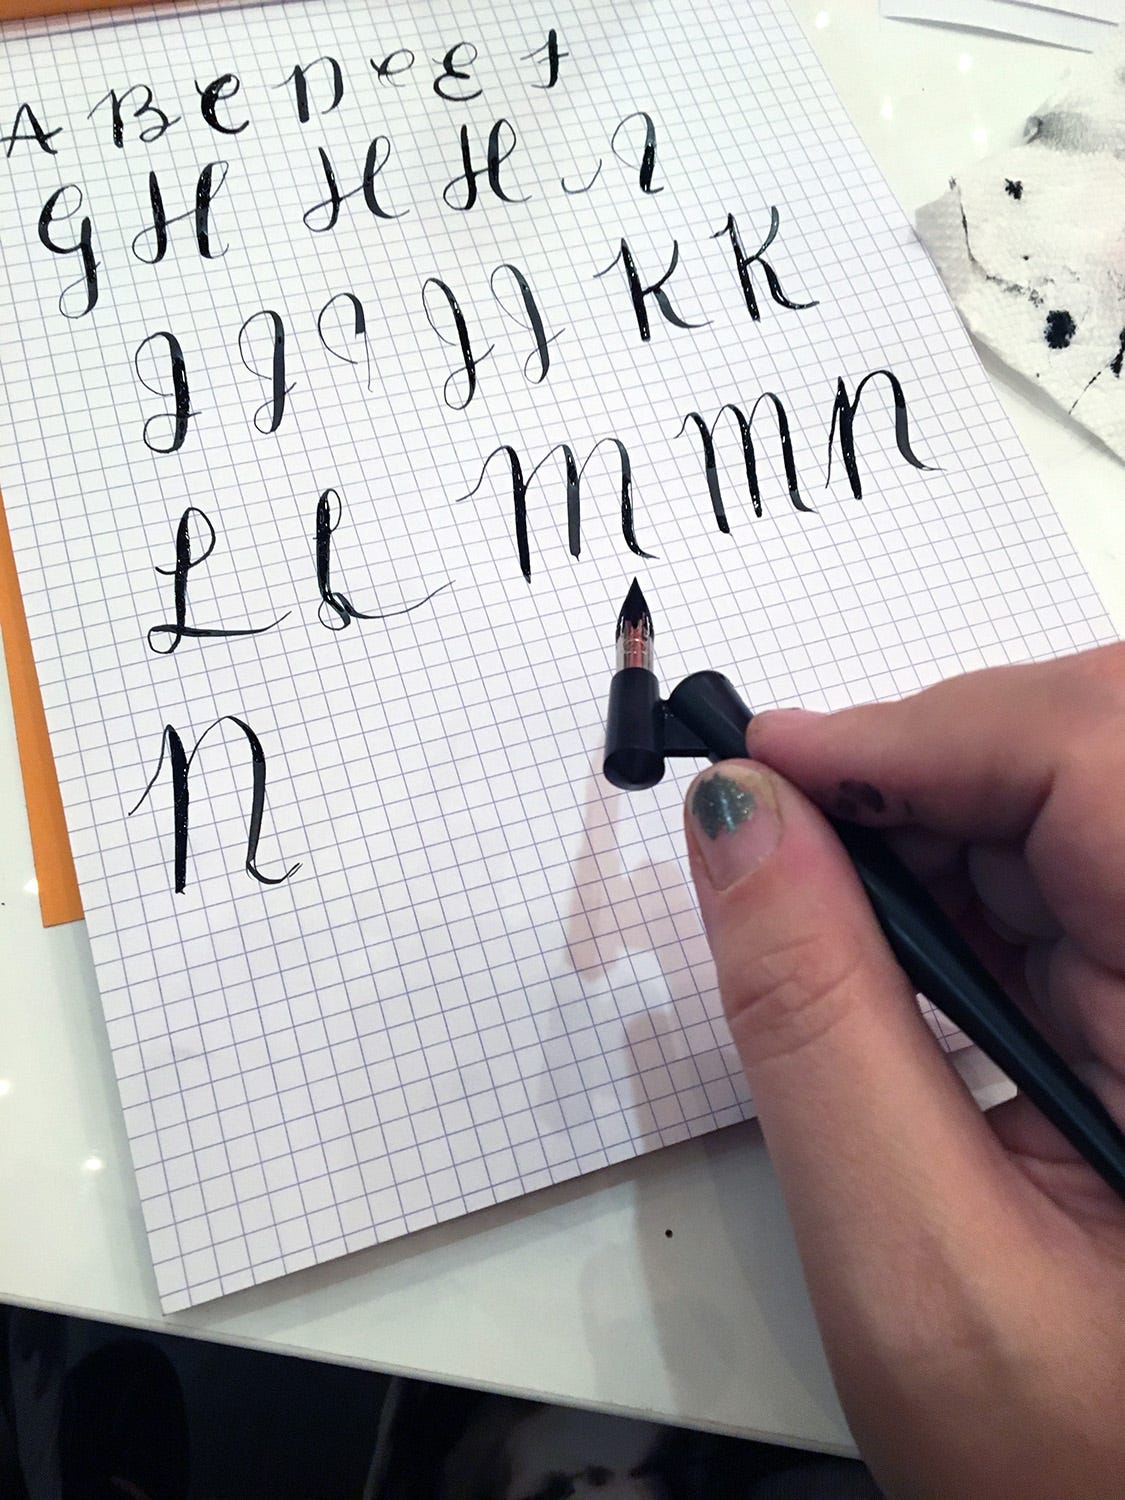 A B C D e E F
G H H H I
J J J J J K K
L L M M N
N